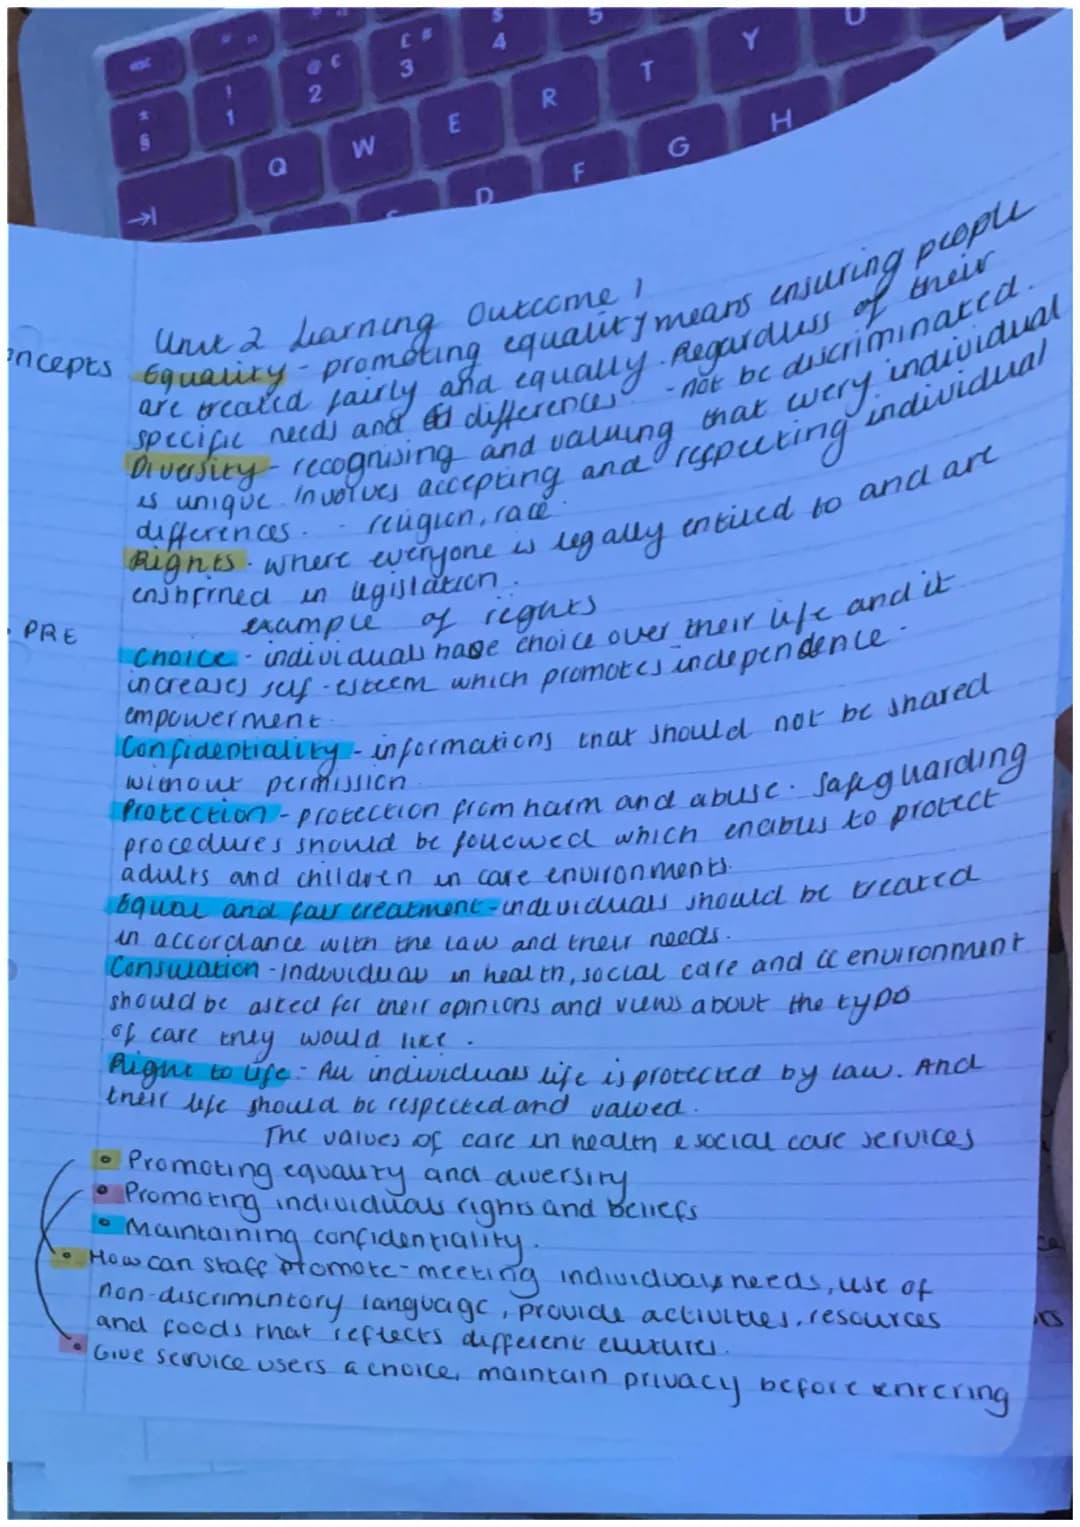 esc
£ #
3
$
4
5
@ €
2
!
1
±
§
Q
W
E
R
T
Y
U
D
F
G
H
Unit 2 Learning Outcome 1
oncepts Equality - promoting equality means ensuring people
are treated fairly and equally. Regardless of their
specific needs and differences - not be discriminated.
Diversity - recognising and valuing that every individual
is unique. involves accepting and respecting individual
differences. - religion, race
Rights. where everyone is legally entiled to and are
enshrined in legislation.
example of rights
PRE
Choice - individuals have choice over their life and it
increases self-esteem which promotes independence.
empowerment.
Confidentiality - informations that should not be shared
without permission.
Protection - protection from harm and abuse. Safeguarding
procedures should be followed which enables to protect
adults and children in care environments.
Equal and fair treatment - individuals should be treated
in accordance with the law and their needs.
Consulation - Individuals in health, social care and cc environment
should be asked for their opinions and views about the type
of care they would like.
Right to life - All individuals life is protected by law. And
their life should be respected and valued.
The values of care in health & social care services
• Promoting equality and diversity
• Promoting individuals rights and beliefs
• Maintaining confidentiality.
• How can staff promote - meeting individuals needs, use of
non-discrimintory language, provide activities, resources
and foods that reflects different cultures.
• Give service users a choice, maintain privacy before entering